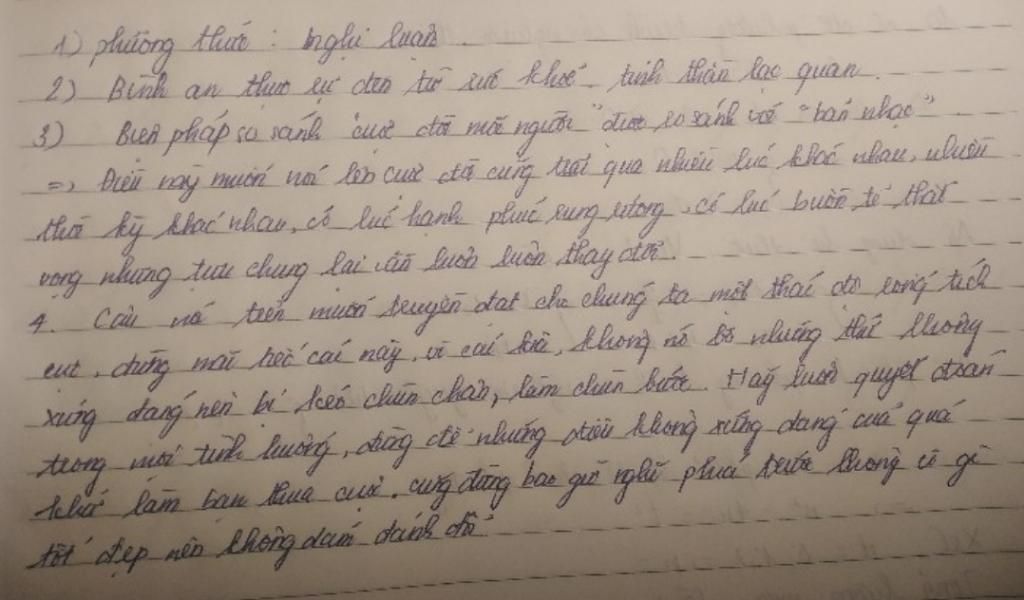 1) phương thức : Nghị luận.
2) Bình an thực sự đến từ sức khoẻ, tinh thần lạc quan.
3) Biện pháp so sánh "cuộc đời mỗi người" được so sánh với "bản nhạc"
=> Điều này muốn nói lên cuộc đời cũng trải qua nhiều lúc khác nhau, nhiều
thời kỳ khác nhau, có lúc hạnh phúc sung sướng, có lúc buồn tẻ thất
vọng nhưng tựu chung lại vẫn luôn luôn thay đổi.
4. Câu nói trên muốn truyền đạt cho chúng ta một thái độ sống tích
cực, đừng mãi tiếc cái này, vì cái kia, không nỡ bỏ những thứ không
xứng đáng nên bị kéo chùn chân, làm chùn bước. Hãy luôn quyết đoán
trong mọi tình huống, đừng để những điều không xứng đáng của quá
khứ làm bạn thua cuộc, cũng đừng bao giờ nghĩ phía trước không có gì
tốt đẹp nên không dám đánh đổi